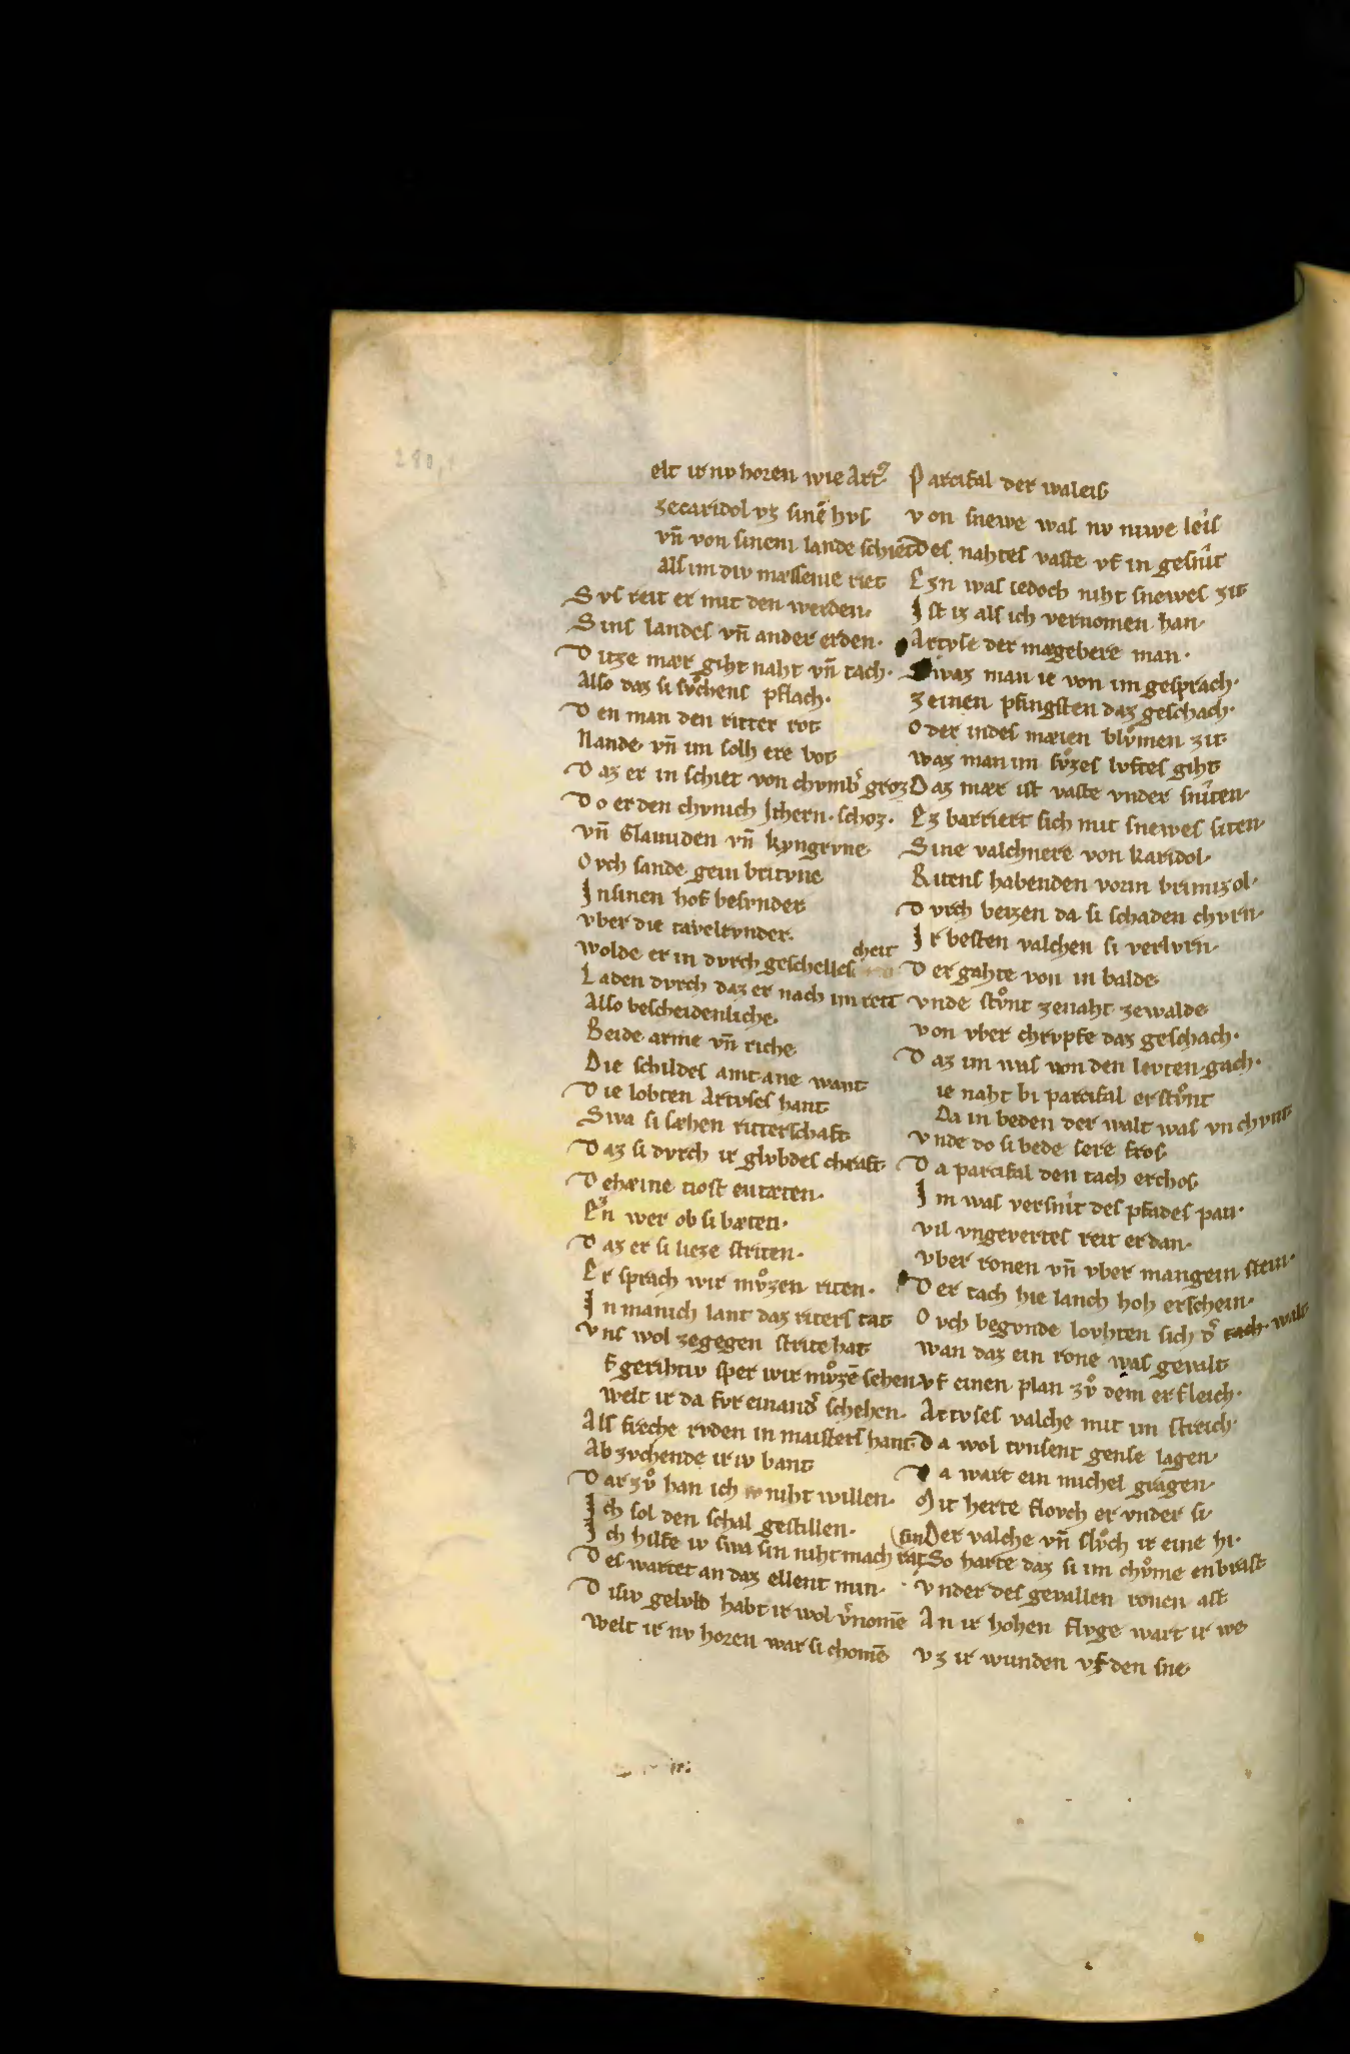 280,1
elt ir nv horen wie Art᾽
zecaridol vz sinē hvs
vn̄ von sinem lande schiet
Als im div mæssenie riet
Svs reit er mit den werden.
Sins landes vn̄ ander erden.
Ditze mær giht naht vn̄ tach.
Also daz si sv̊chens pflach.
Den man den ritter rot
Nande. vn̄ im solh ere bot
Daz er in schiet von chvmb᾽ groz
Do er den chvnich Ithern. schoz.
vn̄ Clamiden vn̄ kyngrvne
Ovch sande gein britvne
Insinen hof besvnder
vber die tavelrvnder.
wolde er in dvrch geschelles
cheit
Laden dvrch daz er nach im reit
Also bescheidenliche.
Beide arme vn̄ riche.
Die schildes amt ane want
Die lobten Artvses hant
Swa si sæhen ritterschaft
Daz si dvrch ir glvbdes chraft
Dehæine tiost entæten.
Ern wer ob si bæten.
Daz er si lieze striten.
Er sprach wir mv̊zen riten.
In manich lant daz riters tat
vns wol zegegen strite hat
fgerihtiv sper wir mv̊zē sehen
welt ir da fvr einand᾽ schehen.
Als freche rvden in maisters hant
Ab zvchende ir iv bant
Dar zv̊ han ich niht willen.
Ich sol den schal gestillen.
Ich hilfe iv swa sin niht mach rat
sin
Des wartet an daz ellent min.
Disiv gelvbd habt ir wol v᾽nomē
welt ir nv horen war si chomē
Parcifal der waleis
von snewe was nv niwe leis
Des nahtes vaste vf in gesnit
Ezn was iedoch niht snewes zit
Ist iz als ich vernomen han.
Artvse der mægebere man.
Swaz man ie von im gesprach.
zeinen pfingsten daz geschach.
Oder indes mæien blv̊men zit
waz man im sv̊zes lvftes giht
Daz mær ist vaste vnder sniten.
Ez barriert sich mit snewes siten.
Sine valchnere von karidol.
Ritens habenden vorm brimizol.
Dvrch beizen da si schaden chvrn.
Ir besten valchen si verlvrn.
Der gahte von in balde
vnde stv̊nt zenaht zewalde
von vber chrvpfe daz geschach.
Daz im was von den levten gach.
ie naht bi parcifal er stv̊nt
Da in beden der walt was vn chvnt
vnde do si bede sere fros
Da parcifal den tach erchos
Im was versnit des pfades pan.
vil vngevertes reit er dan.
vber ronen vn̄ vber mangein stein.
Der tach hie lanch hoh erschein.
Ovch begvnde lovhten sich d᾽ walt
wan daz ein rone was gevalt
vf einen plan zv̊ dem er sleich.
Artvses valche mit im streich.
Da wol tvsent gense lagen.
Da wart ein michel gragen.
Mit herte flovch er vnder si.
Der valche vn̄ slv̊ch ir eine hi.
So harte daz si im chv̊me enbrast
vnder des gevallen ronen ast
An ir hohen flvge wart ir we
vz ir wunden vf den sne